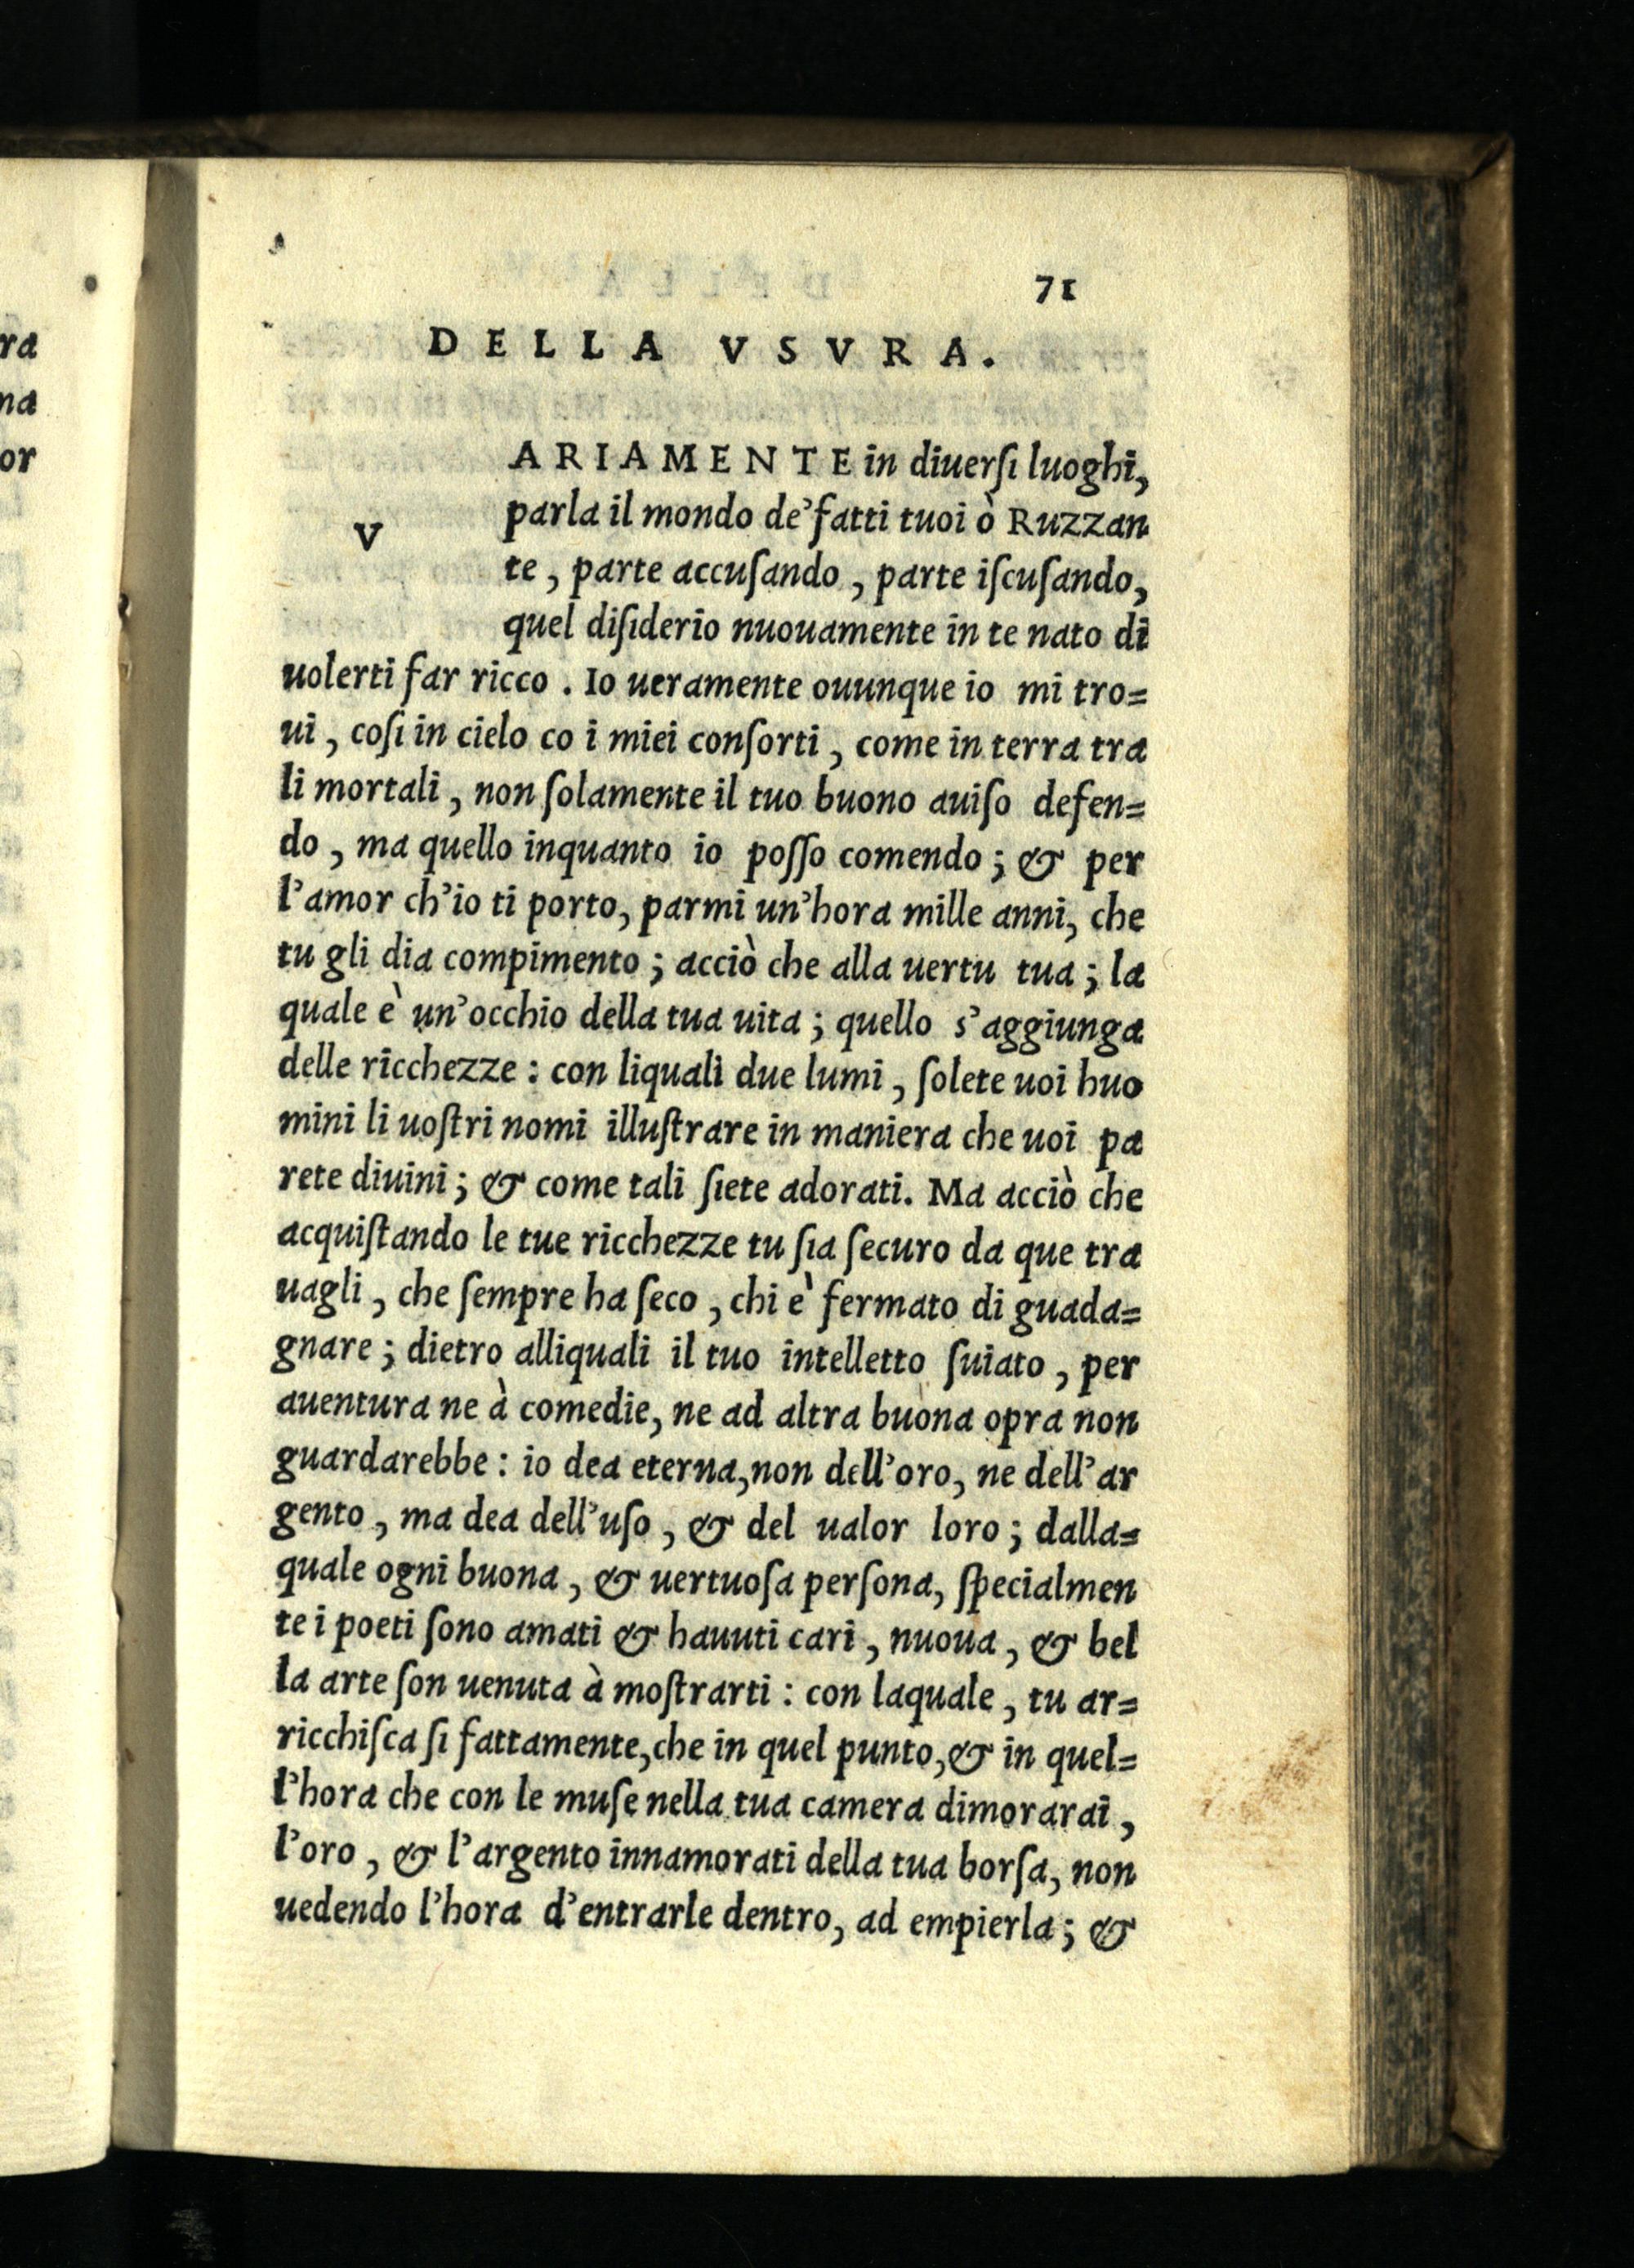 ra
na
or
71
DELLA VSVRA.
V
ARIAMENTE in diuerſi luoghi,
parla il mondo de'fatti tuoi ò Ruzzan
te, parte accuſando, parte iſcuſando,
quel diſiderio nuouamente in te nato di
uolerti far ricco. Io ueramente ouunque io mi tro=
ui, coſi in cielo co i miei conſorti, come in terra tra
li mortali, non ſolamente il tuo buono auiſo defen=
do, ma quello inquanto io poſſo comendo; & per
l'amor ch'io ti porto, parmi un'hora mille anni, che
tu gli dia compimento; acciò che alla uertu tua; la
quale è un'occhio della tua uita; quello s'aggiunga
delle ricchezze: con liquali due lumi, ſolete uoi huo
mini li uoſtri nomi illuſtrare in maniera che uoi pa
rete diuini; & come tali ſiete adorati. Ma acciò che
acquiſtando le tue ricchezze tu ſia ſecuro da que tra
uagli, che ſempre ha ſeco, chi è fermato di guada=
gnare; dietro alliquali il tuo intelletto ſuiato, per
auentura ne à comedie, ne ad altra buona opra non
guardarebbe: io dea eterna, non dell'oro, ne dell'ar
gento, ma dea dell'uſo, & del ualor loro; dalla=
quale ogni buona, & uertuoſa perſona, ſpecialmen
te i poeti ſono amati & hauuti cari, nuoua, & bel
la arte ſon uenuta à moſtrarti: con laquale, tu ar=
ricchiſca ſi fattamente, che in quel punto, & in quel=
l'hora che con le muſe nella tua camera dimorarai,
l'oro, & l'argento innamorati della tua borſa, non
uedendo l'hora d'entrarle dentro, ad empierla; &